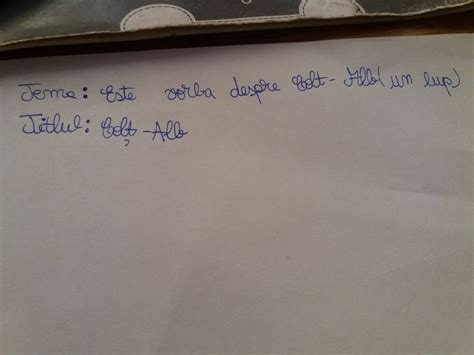 Tema: Este vorba despre Colt-Alb( un lup)
Titlul: Colț-Alb